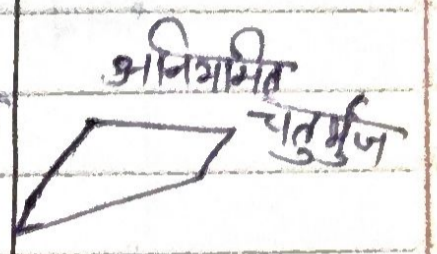 अनियमित
चतुर्भुज